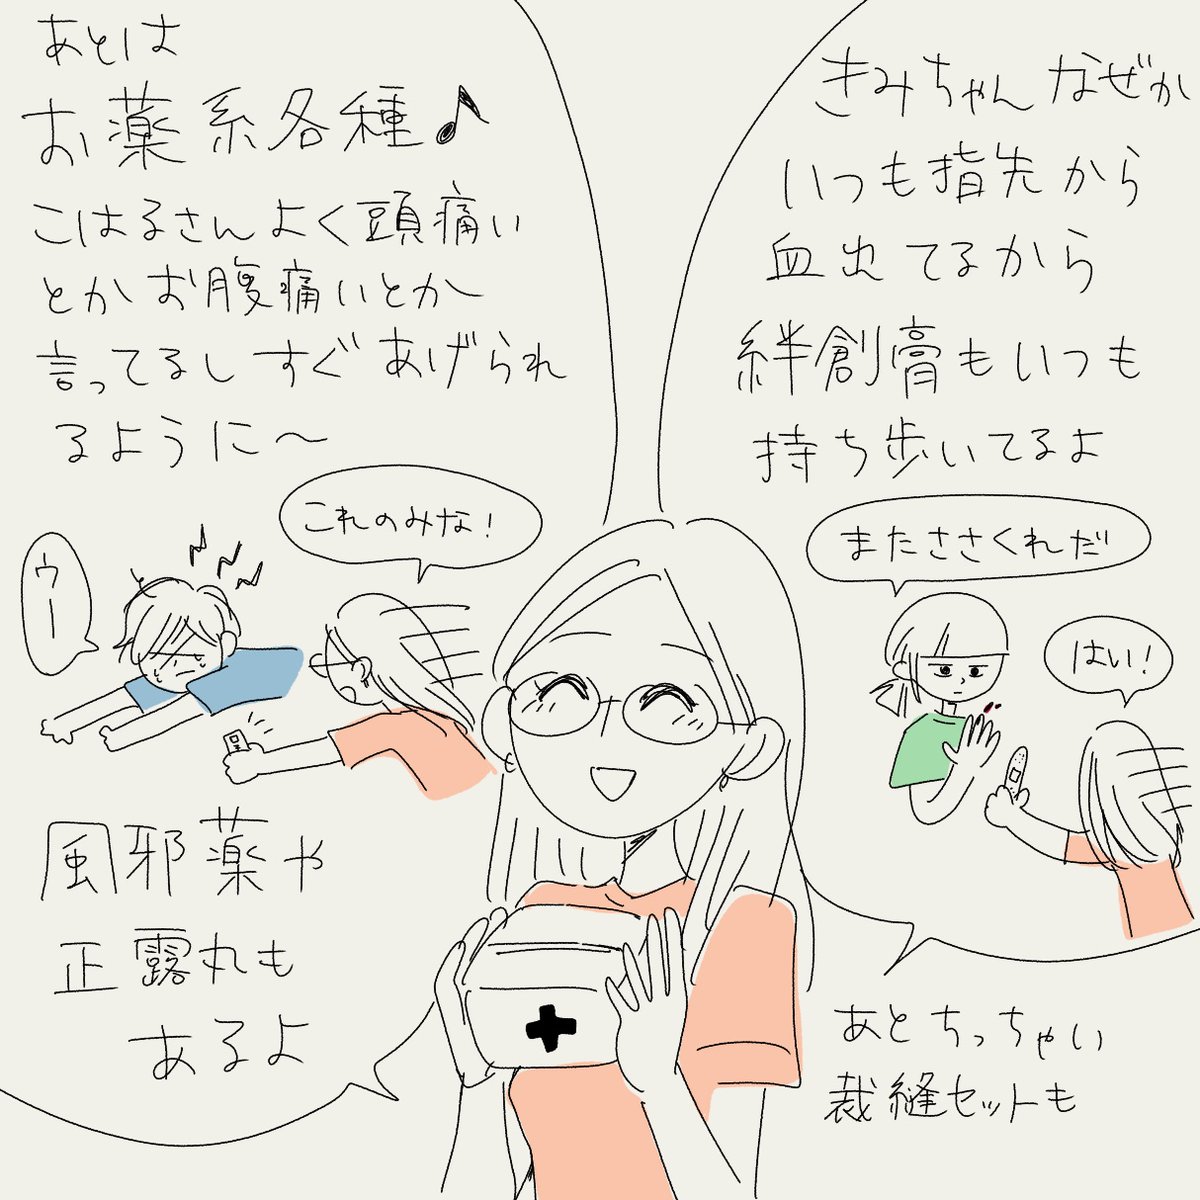 きみちゃんなぜか
いつも指先から
血出てるから
絆創膏もいつも
持ち歩いてるよ
またささくれだ
はい!
あとちっちゃい
裁縫セットも
あとは
お薬系各種♪
こはるさんよく頭痛い
とかお腹痛いとか
言ってるしすぐあげられ
るように〜
これのみな!
ウー
風邪薬や
正露丸も
あるよ